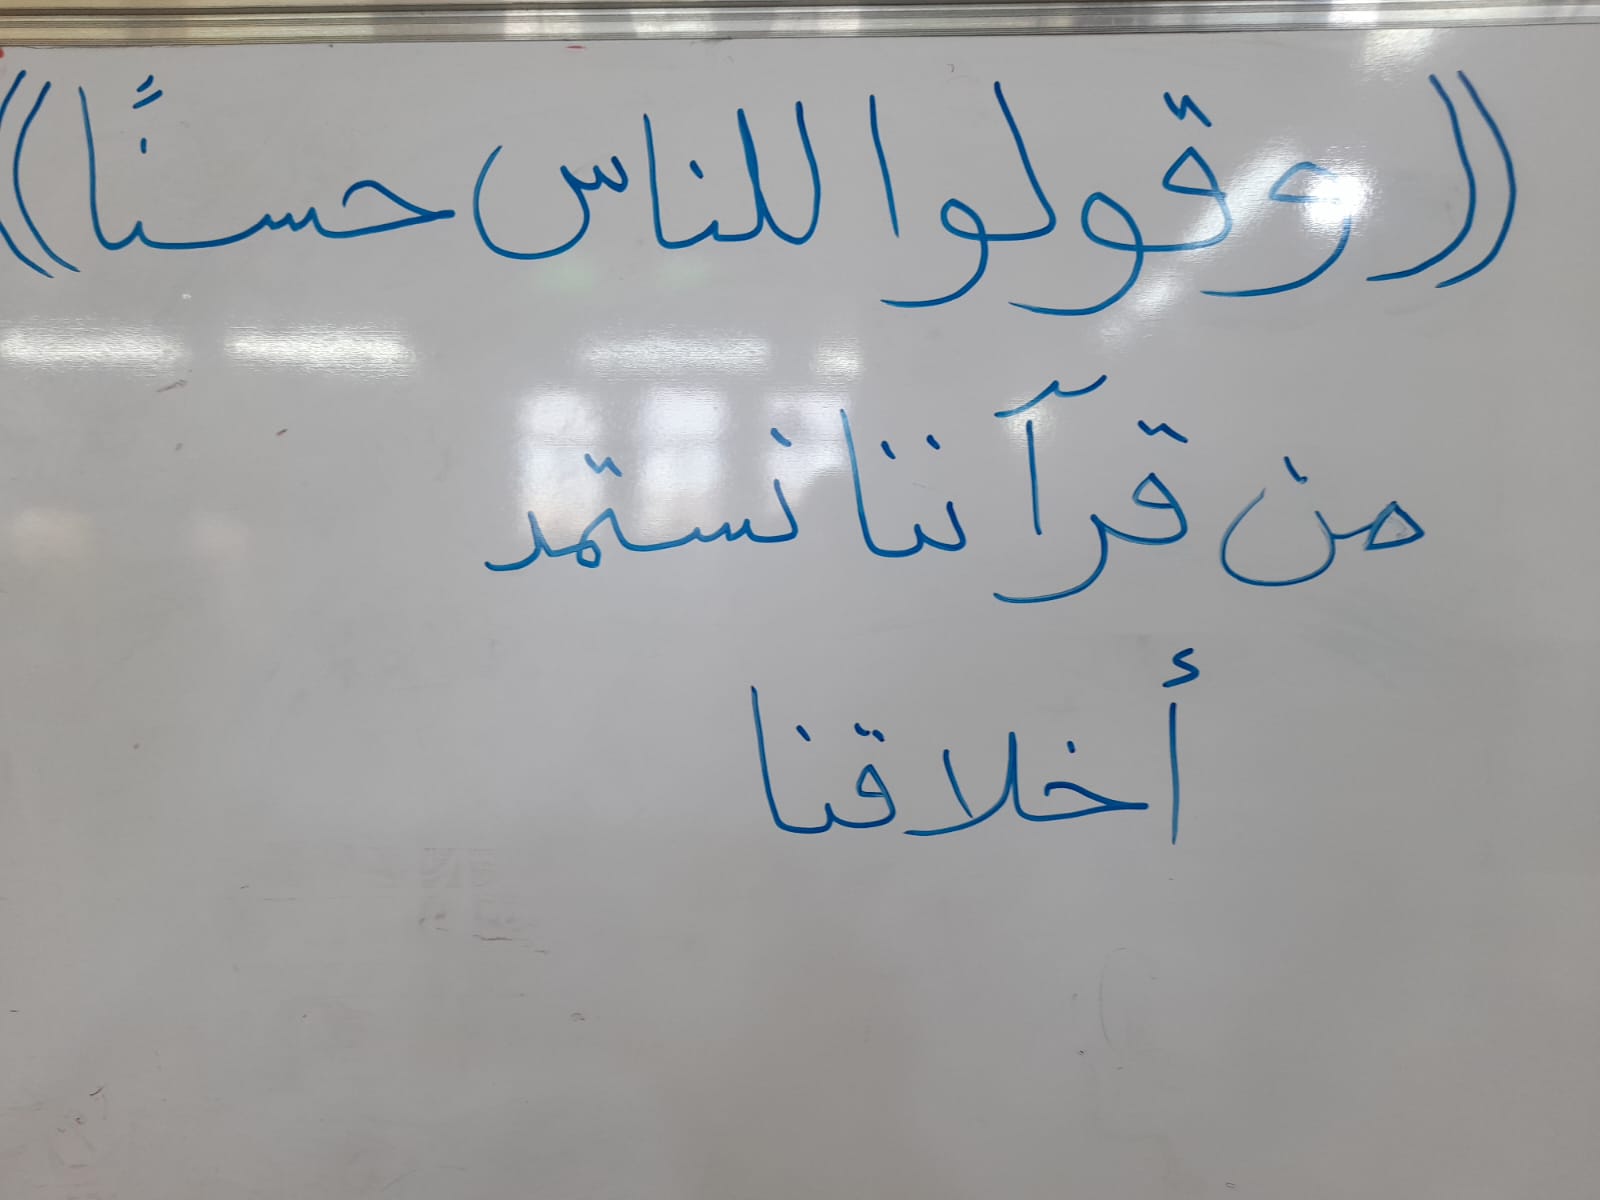 ((وقولوا للناس حسنًا))
من قرآننا نستمد
أخلاقنا